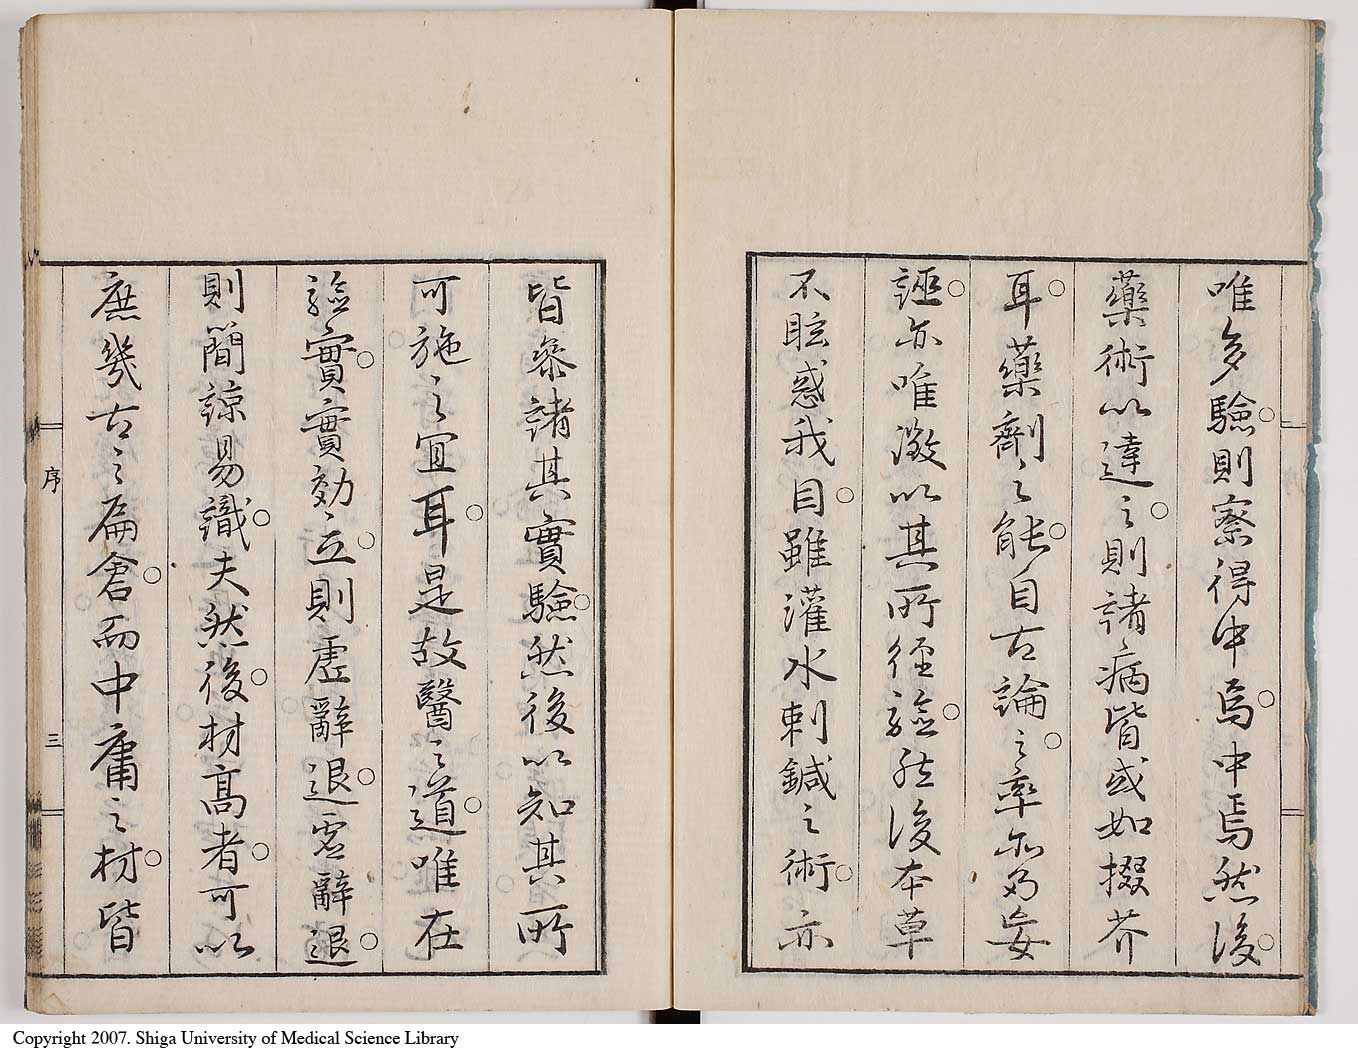 唯多驗則察得中焉中焉然後
藥術以達之則諸病皆或如掇芥
耳藥劑之能自古論之率亦多妄
誣亦唯徵以其所徑驗然後本草
不眩惑我目雖灌水刺鍼之術亦
皆參諸其實驗然後以知其所
可施之宜耳是故醫之道唯在
驗實實效立則虛辭退虛辭退
則簡諒易識夫然後材高者可以
庶幾古之扁倉而中庸之材皆
序
三
Copyright 2007. Shiga University of Medical Science Library